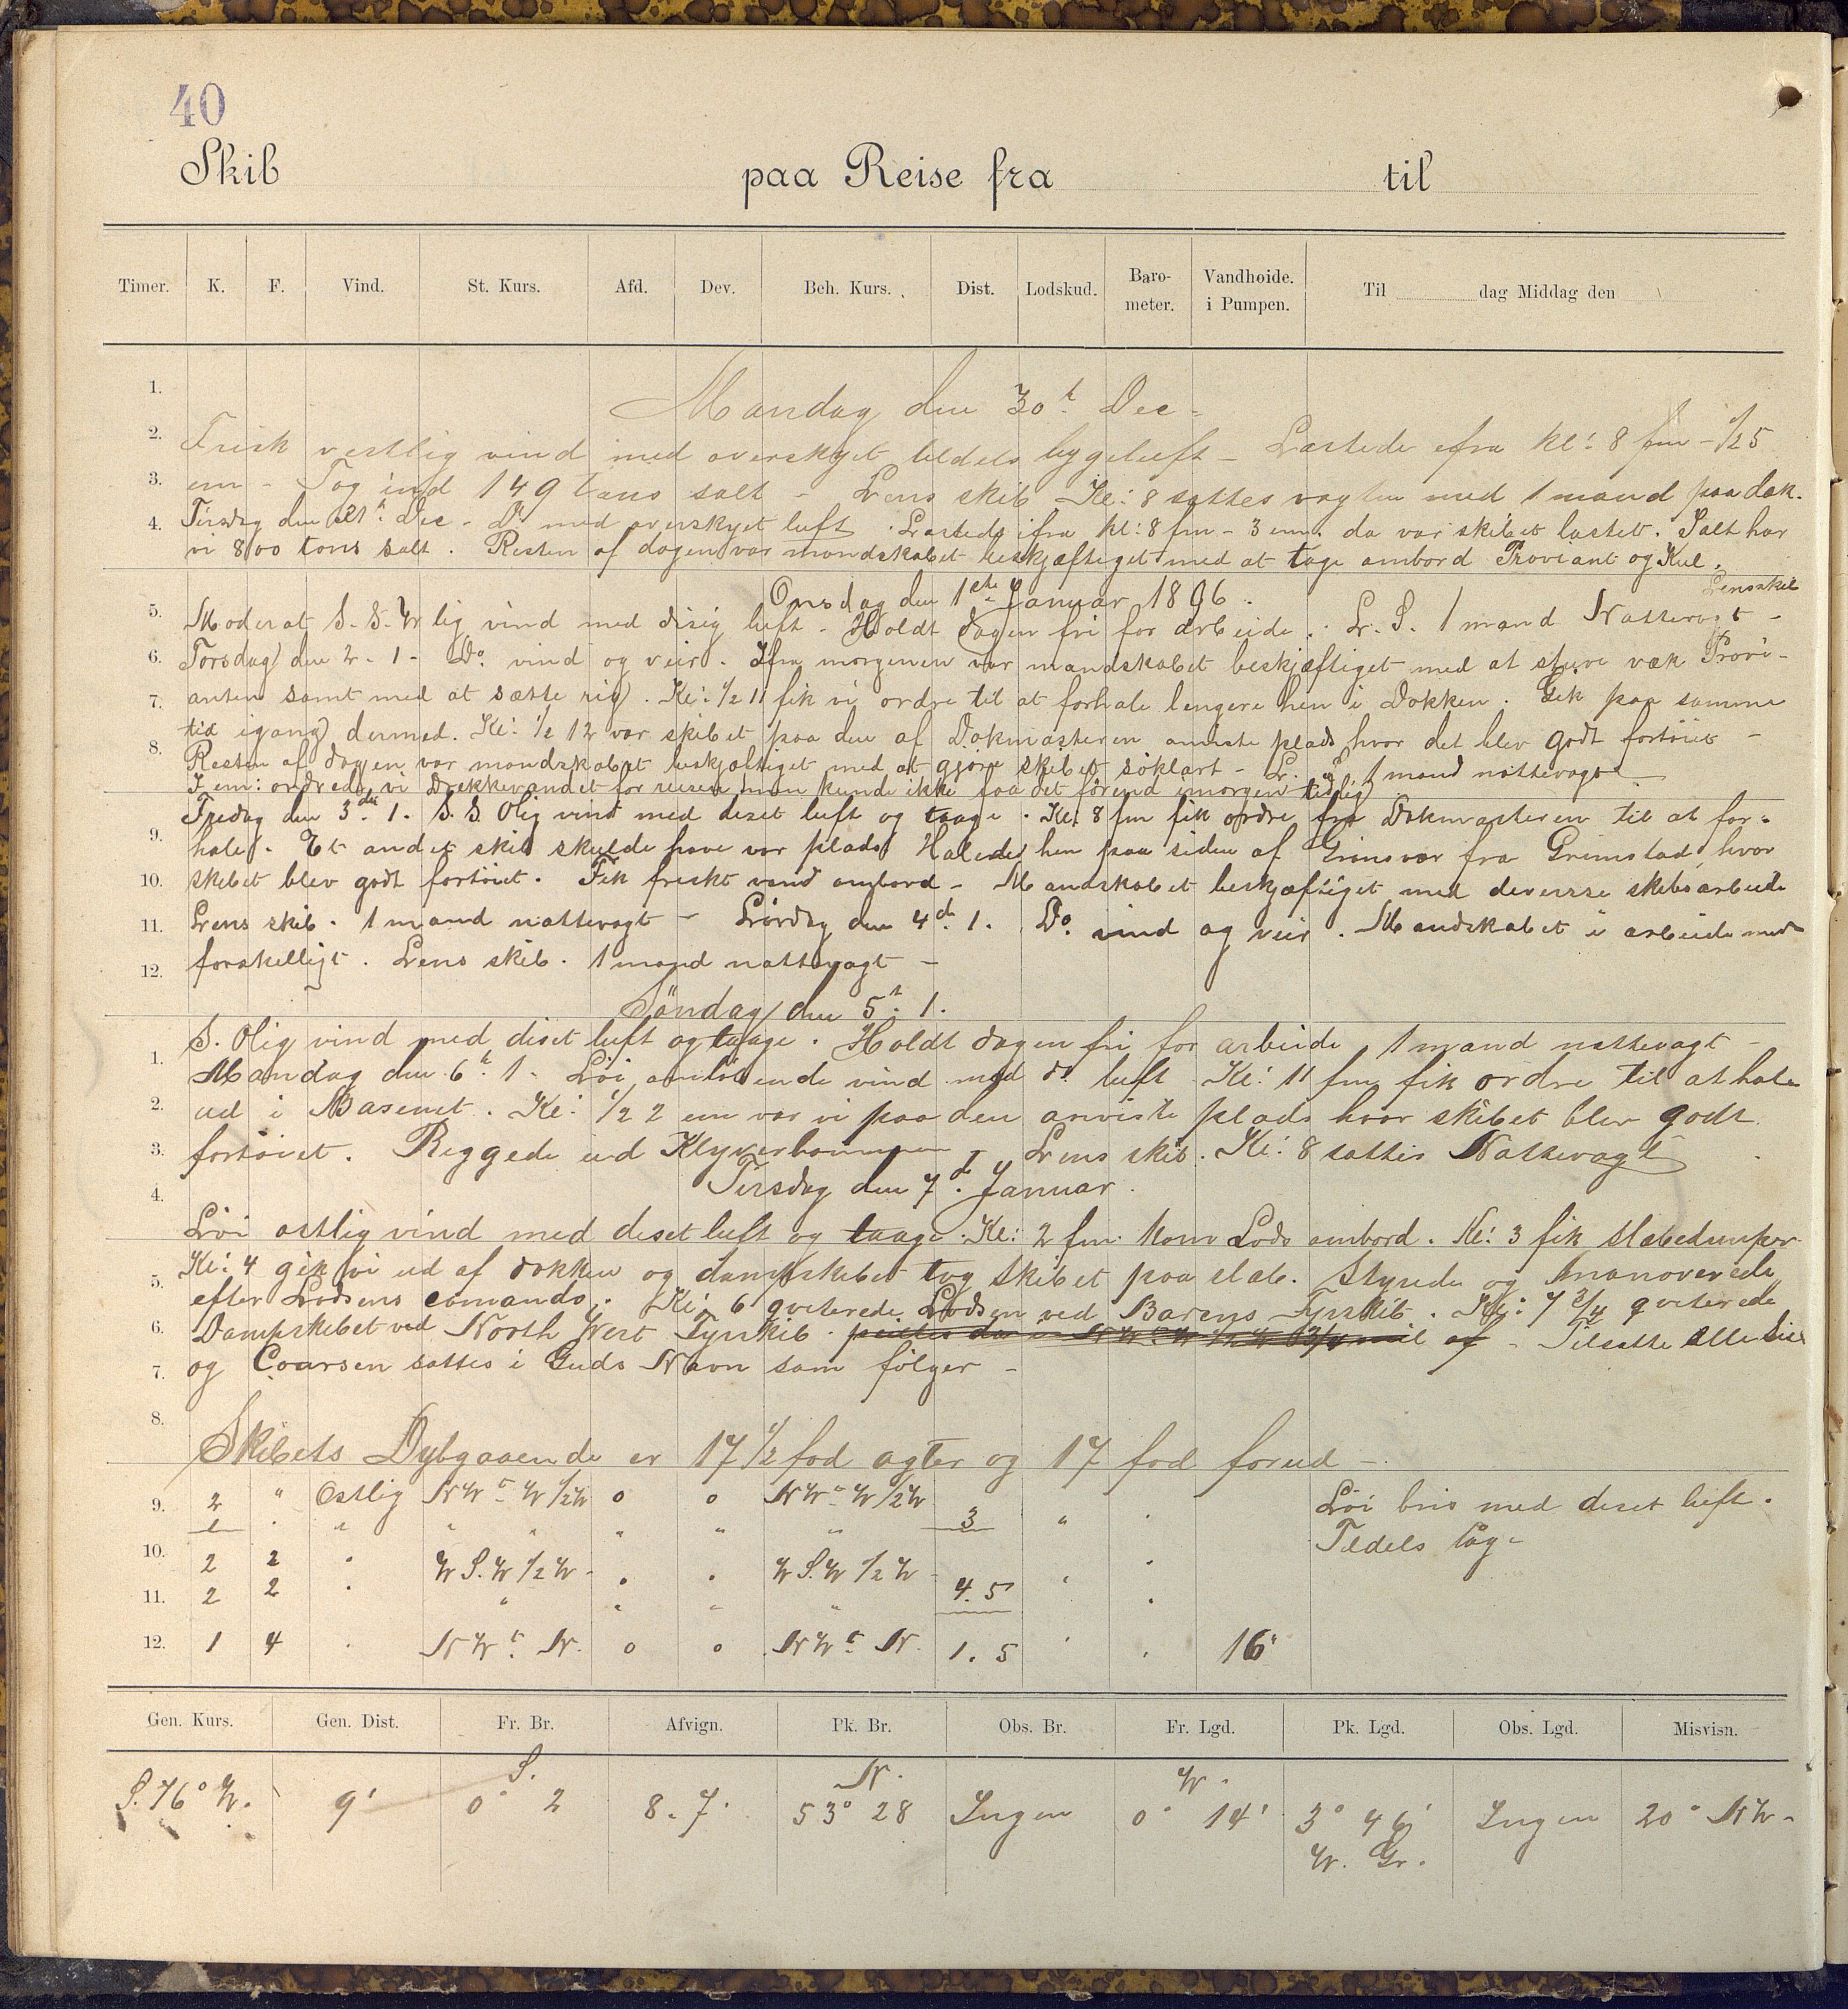 40
Skib paa Reise fra til
Timer. K. F. Vind. St. Kurs. Afd. Dev. Beh. Kurs. Dist. Lodskud. Baro-meter. Vandhoide. i Pumpen. Til dag Middag den
1.
Mandag den 30t Dec -
2. Frisk vestlig vind med overskyet tildels bygeluft - Lastede ifra kl: 8 fm - 1/2 5
3. em - Tog ind 149 tons salt - Lens skib - Kl: 8 sattes vagten med 1 mand paa dæk.
4. Tirsdag den 31t Dec - Do med overskyet luft. Lastede ifra kl: 8 fm - 3 em. da var skibet lastet. Ialt har
vi 800 tons salt. Resten af dagen var mandskabet beskjæftiget med at tage ombord Proviant og Kul.
Lensskib
Onsdag den 1ste Januar 1896.
5. Moderat S.S.W lig vind med disig luft - Holdt dagen fri for arbeide. L. S. 1 mand Nattevagt -
6. Torsdag den 2 - 1 - Do. vind og veir. Ifra morgenen var mandskabet beskjæftiget med at stuve væk Provi-
7. anten samt med at sætte rig. Kl: 1/2 11 fik vi ordre til at forhale lengere hen i Dokken. Gik paa samme
tid igang dermed. Kl: 1/2 12 var skibet paa den af Dokmasteren anviste plads hvor det blev godt fortöiet -
8. Resten af dagen var mandskabet beskjæftiget med at gjöre skibet söklart - L. S. 1 mand nattevagt -
I em: ordrede vi Drekkevandet for reisen, men kunde ikke faa det förend imorgen tidlig
Fredag den 3die 1. S. S. Olig vind med diset luft og taage. Kl: 8 fm fik ordre fra Dokmasteren til at for-
9. hale. Et andet skib skulde have vor plads. Halede hen paa siden af Grimsvær fra Grimstad, hvor
10. skibet blev godt fortöiet. Fik friskt vand ombord - Mandskabet beskjæftiget med deversse skibsarbeide
11. Lens skib. 1 mand nattevagt - Lördag den 4de 1. Do. vind og veir. Mandskabet i arbeide med
12. forskelligt. Lens skib. 1 mand nattevagt -
Söndag den 5t 1.
1. S. Olig vind med diset luft og taage. Holdt dagen fri for arbeide 1 mand nattevagt -
Mandag den 6t 1. Löi omlöbende vind med do. luft. Kl: 11 fm fik ordre til at hale
2. ud i Basenet. Kl: 1/2 2 em var vi paa den anviste plads hvor skibet blev godt
3. fortöiet. Riggede ud Klyverbommen Lens skib. Kl: 8 sattes Nattevagt
4. Tirsdag den 7de Januar.
Löi ostlig vind med diset luft og taage. Kl: 2 fm. kom Lods ombord. Kl: 3 fik slæbedamper
5. Kl: 4 gik vi ud af dokken og dampskibet tog skibet paa slæb. Styrede og manoverede
efter Lodsens comando. Kl: 6 qviterede Lodsen ved Barens Fyrskib. Kl: 7 3/4 qviterede
6. Dampskibet ved North West Fyrskib. peiltes da - Tilsatte alle Seil
7. og Coursen sattes i Guds Navn som fölger -
8.
Skibets Dybgaaende er 17 1/2 fod agter og 17 fod forud -
9. 2 " Ostlig NWt W 1/2 W 0 0 NWt W 1/2 W Löi bris med diset luft.
" " " " " " " 3 " Tildels tåge
10. 2 2 " W S.W 1/2 W " " W S.W 1/2 W
11. 2 2 " " " " " 4.5 "
12. 1 4 " NWt N. 0 0 NWt N. 1.5 " " 16"
Gen. Kurs. Gen. Dist. Fr. Br. Afvign. Pk. Br. Obs. Br. Fr. Lgd. Pk. Lgd. Obs. Lgd. Misvisn.
S. N. W.
S. 76° W. 9' 0° 2 8.7' 53° 28 Ingen 0° 14' 3° 46' Ingen 20° NW -
W. Gr.